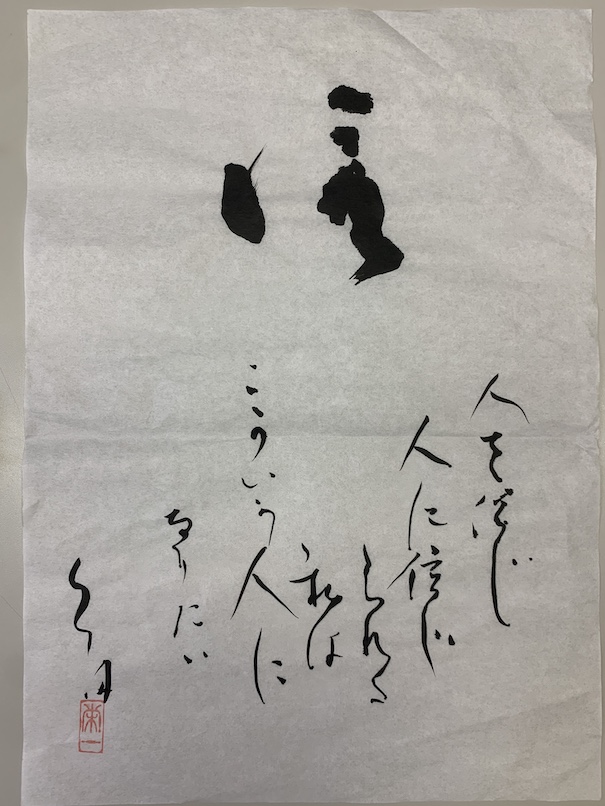 信
人を信じ
人に信じ
られる
私は
こういう人に
なりたい